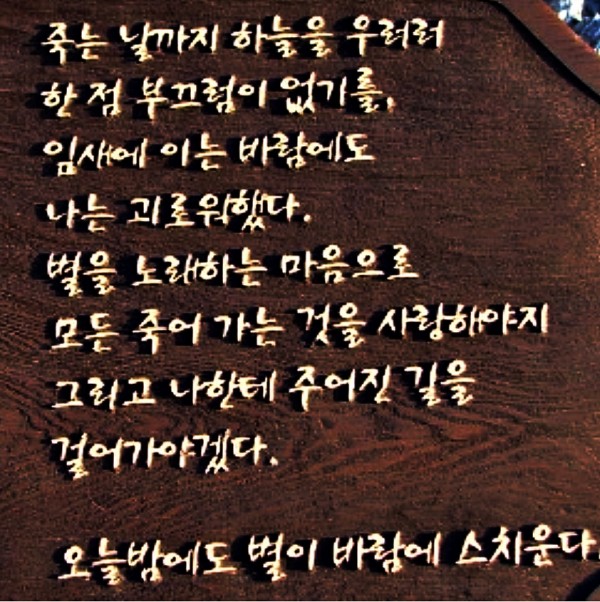 죽는 날까지 하늘을 우러러
한 점 부끄럼이 없기를,
잎새에 이는 바람에도
나는 괴로워했다.
별을 노래하는 마음으로
모든 죽어 가는 것을 사랑해야지
그리고 나한테 주어진 길을
걸어가야겠다.
오늘밤에도 별이 바람에 스치운다.